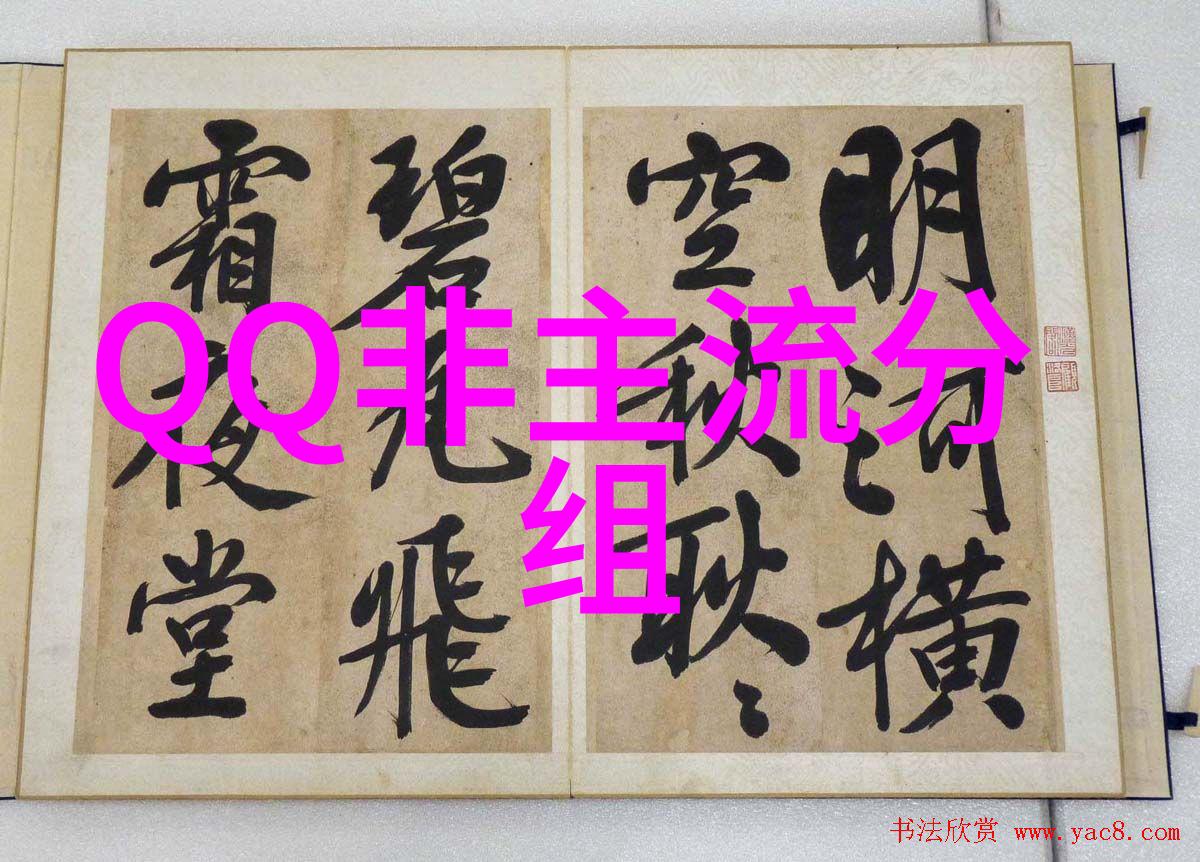 QQ非主流分
组
明河横
空秋耿〻
碧瓦飛
霜夜堂
书法欣赏 www.yac8.com